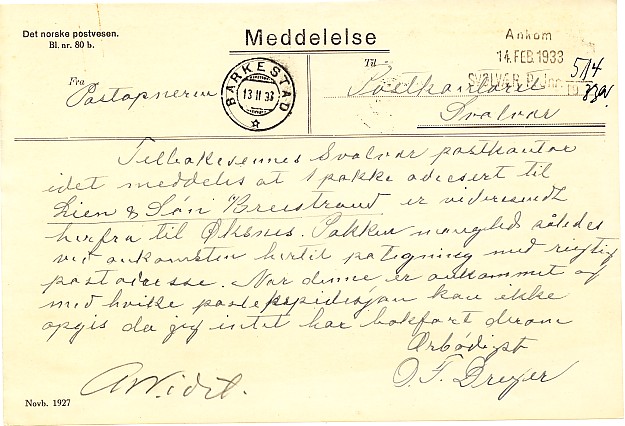 Det norske postvesen.
Bl. nr. 80 b.
Meddelelse
Ankom
14.FEB.1933
SVOLVÆR P.
Jnr. 19
514
Fra
Postopneren
BARKESTAD
13 II 33
Til
Postkontoret
Svolvær
Tilbakesennes Svolvær postkontor
idet meddeles at 1 pakke adresert til
Lien & Søn Breistrand er videresendt
herfra til Øksnes. Pakken mangled således
ved ankomsten hertil påtegning med rigtig
postadresse. Når denne er ankommet og
med hvilke postexpedisjon kan ikke
opgis da jeg intet har bokført derom
Ærbødigst
O. F. Dreyer
Novb. 1927